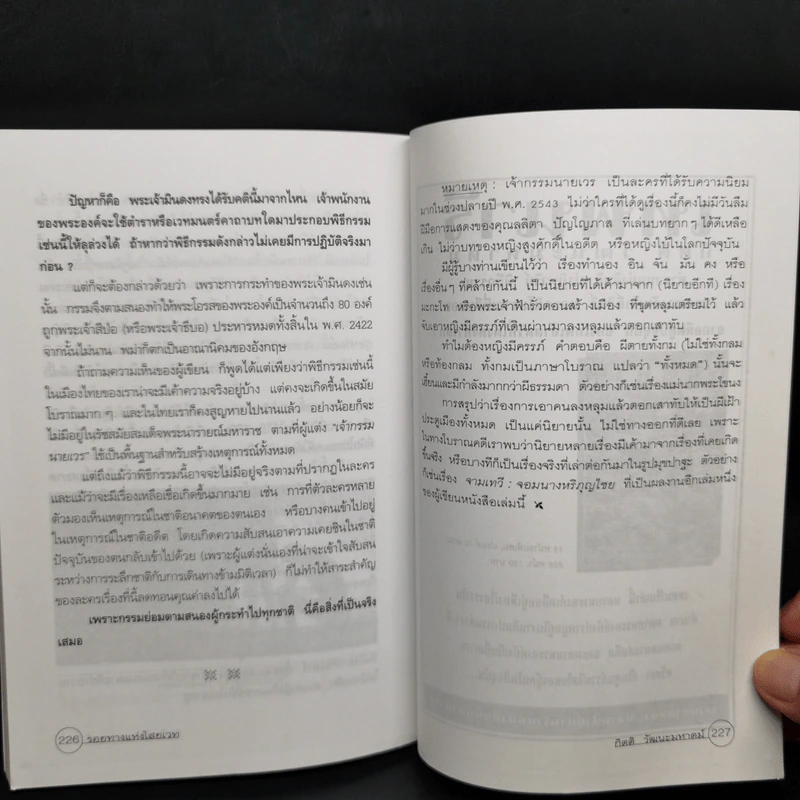 ปัญหาก็คือ พระเจ้ามินดงทรงได้รับคตินี้มาจากไหน เจ้าพนักงาน
ของพระองค์จะใช้ตำราหรือเวทมนตร์คาถาบทใดมาประกอบพิธีกรรม
เช่นนี้ให้ลุล่วงได้ ถ้าหากว่าพิธีกรรมดังกล่าวไม่เคยมีการปฏิบัติจริงมา
ก่อน ?
แต่ก็จะต้องกล่าวด้วยว่า เพราะการกระทำของพระเจ้ามินดงเช่น
นั้น กรรมจึงตามสนองทำให้พระโอรสของพระองค์เป็นจำนวนถึง 80 องค์
ถูกพระเจ้าสีป่อ (หรือพระเจ้าธีบอ) ประหารหมดทั้งสิ้นใน พ.ศ. 2422
จากนั้นไม่นาน พม่าก็ตกเป็นอาณานิคมของอังกฤษ
ถ้าถามความเห็นของผู้เขียน ก็พูดได้แต่เพียงว่าพิธีกรรมเช่นนี้
ในเมืองไทยของเราน่าจะมีเค้าความจริงอยู่บ้าง แต่คงจะเกิดขึ้นในสมัย
โบราณมาก ๆ และในไทยเราก็คงสูญหายไปนานแล้ว อย่างน้อยก็จะ
ไม่มีอยู่ในรัชสมัยสมเด็จพระนารายณ์มหาราช ตามที่ผู้แต่ง "เจ้ากรรม
นายเวร" ใช้เป็นพื้นฐานสำหรับสร้างเหตุการณ์ทั้งหมด
แต่ถึงแม้ว่าพิธีกรรมนี้อาจจะไม่มีอยู่จริงตามที่ปรากฏในละคร
และแม้ว่าจะมีเรื่องเหลือเชื่อเกิดขึ้นมากมาย เช่น การที่ตัวละครหลาย
ตัวมองเห็นเหตุการณ์ในชาติอนาคตของตนเอง หรือบางคนเข้าไปอยู่
ในเหตุการณ์ในชาติอดีต โดยเกิดความสับสนเอาความเคยชินในชาติ
ปัจจุบันของตนกลับเข้าไปด้วย (เพราะผู้แต่งนั่นเองที่น่าจะเข้าใจสับสน
ระหว่างการระลึกชาติกับการเดินทางข้ามมิติเวลา) ก็ไม่ทำให้สาระสำคัญ
ของละครเรื่องที่นี้ลดทอนคุณค่าลงไปได้
เพราะกรรมย่อมตามสนองผู้กระทำไปทุกชาติ นี่คือสิ่งที่เป็นจริง
เสมอ
226 รอยทางแห่งไสยเวท
หมายเหตุ : เจ้ากรรมนายเวร เป็นละครที่ได้รับความนิยม
มากในช่วงปลายปี พ.ศ. 2543 ไม่ว่าใครที่ได้ดูเรื่องนี้ก็คงไม่มีวันลืม
ฝีมือการแสดงของคุณลลิตา ปัญโญภาส ที่เล่นบทยากๆ ได้ดีเหลือ
เกิน ไม่ว่าบทของหญิงสูงศักดิ์ในอดีต หรือหญิงใบ้ในโลกปัจจุบัน
มีผู้รู้บางท่านเขียนไว้ว่า เรื่องทำนอง อิน จัน มั่น คง หรือ
เรื่องอื่นๆ ที่คล้ายกันนี้ เป็นนิยายที่ได้เค้ามาจาก (นิยายอีกที) เรื่อง
มะกะโท หรือพระเจ้าฟ้ารั่วตอนสร้างเมือง ที่ขุดหลุมเตรียมไว้ แล้ว
จับเอาหญิงมีครรภ์ที่เดินผ่านมาลงหลุมแล้วตอกเสาทับ
ทำไมต้องหญิงมีครรภ์ คำตอบคือ ผีตายทั้งกม (ไม่ใช่ทั้งกลม
หรือท้องกลม ทั้งกมเป็นภาษาโบราณ แปลว่า "ทั้งหมด") นั้นจะ
เฮี้ยนและมีกำลังมากกว่าผีธรรมดา ตัวอย่างก็เช่นเรื่องแม่นากพระโขนง
การสรุปว่าเรื่องการเอาคนลงหลุมแล้วตอกเสาทับให้เป็นผีเฝ้า
ประตูเมืองทั้งหมด เป็นแค่นิยายนั้น ไม่ใช่ทางออกที่ดีเลย เพราะ
ในทางโบราณคดีเราพบว่านิยายหลายเรื่องมีเค้ามาจากเรื่องที่เคยเกิด
ขึ้นจริง หรือบางทีก็เป็นเรื่องจริงที่เล่าต่อกันมาในรูปมุขปาฐะ ตัวอย่าง
ก็เช่นเรื่อง จามเทวี : จอมนางหริภุญไชย ที่เป็นผลงานอีกเล่มหนึ่ง
ของผู้เขียนหนังสือเล่มนี้
กิตติ วัฒนะมหาตม์ 227